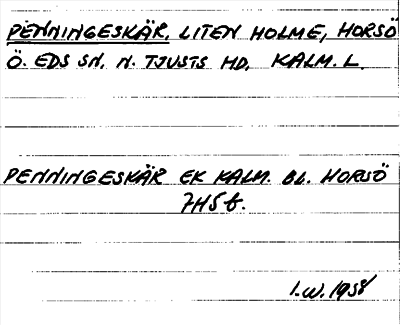 PENNINGESKÄR, LITEN HOLME, HORSÖ
Ö. EDS SN, N. TJUSTS HD, KALM. L.
PENNINGESKÄR EK KALM. BL. HORSÖ
7H5f.
I.W. 1958